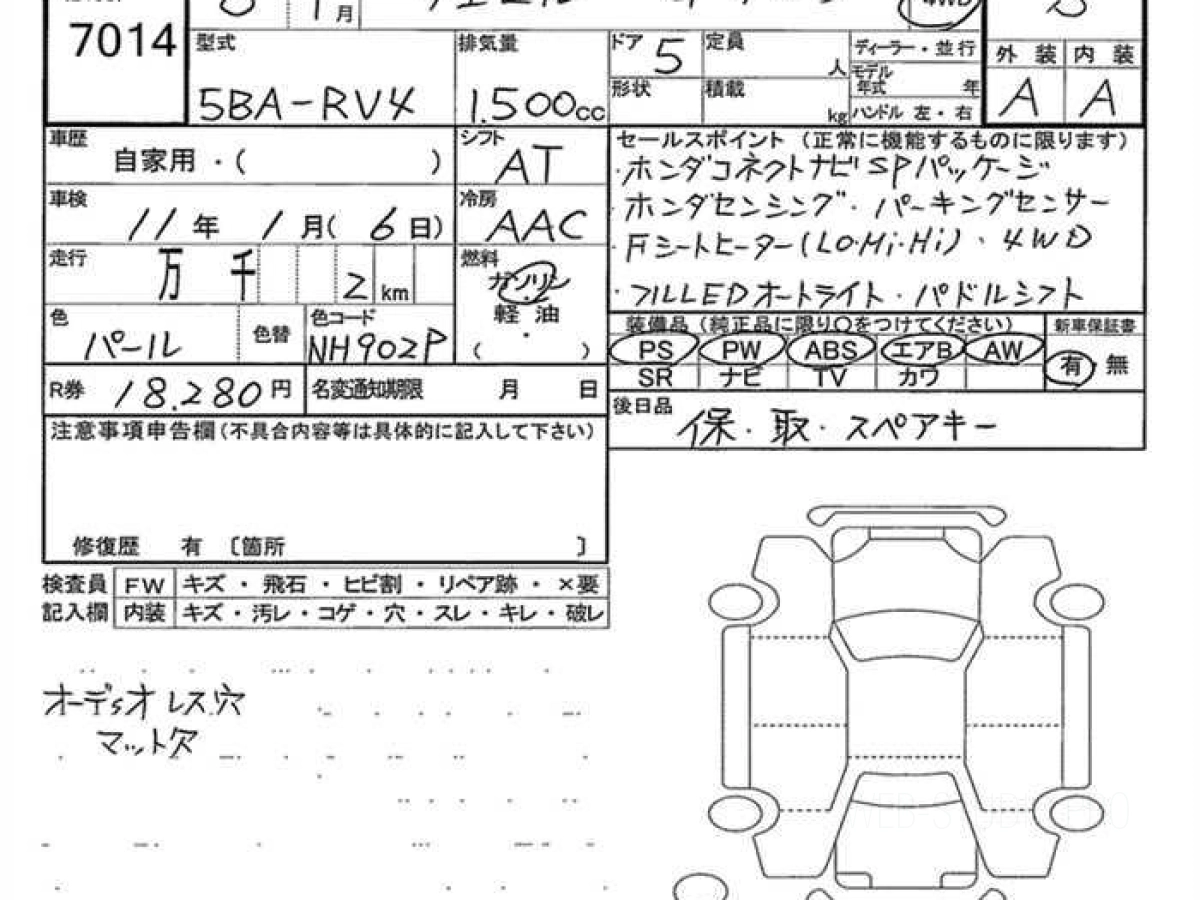 7014
月
4WD
型式
5BA-RV4
排気量
1.500cc
ドア 5
形状
定員 人
積載 kg
ディーラー・並行
モデル年式 年
ハンドル 左・右
外装 内装
A A
車歴
自家用・( )
シフト
AT
車検
11年 1月(6日)
冷房
AAC
走行
万 千 2 km
燃料
ガソリン
・
軽油
・
( )
色
パール
色替
色コード
NH902P
R券 18.280円
名変通知期限 月 日
セールスポイント (正常に機能するものに限ります)
・ホンダコネクトナビSPパッケージ
・ホンダセンシング・パーキングセンサー
・Fシートヒーター(LO・Mi・Hi)、4WD
・フルLEDオートライト・パドルシフト
装備品 (純正品に限り○をつけてください)
PS PW ABS エアB AW
SR ナビ TV カワ
新車保証書
有 無
後日品
保・取・スペアキー
注意事項申告欄(不具合内容等は具体的に記入して下さい)
修復歴 有 〔箇所 〕
検査員 FW キズ・飛石・ヒビ割・リペア跡・×要
記入欄 内装 キズ・汚レ・コゲ・穴・スレ・キレ・破レ
オーディオレス穴
マット欠